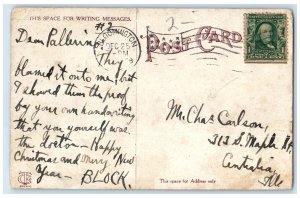 THIS SPACE FOR WRITING MESSAGES.
#2
2
DEC 25
POST CARD
Dear Pallerin:
They
blamed it onto me, but
I showed them the proof
by your own handwriting
that you yourself was
the doctor - Happy
Christmas and Merry New
Year - BLOCK.
Mr. Chas Carlson,
313 S. Maple St,
Centralia,
Ills
This space for Address only